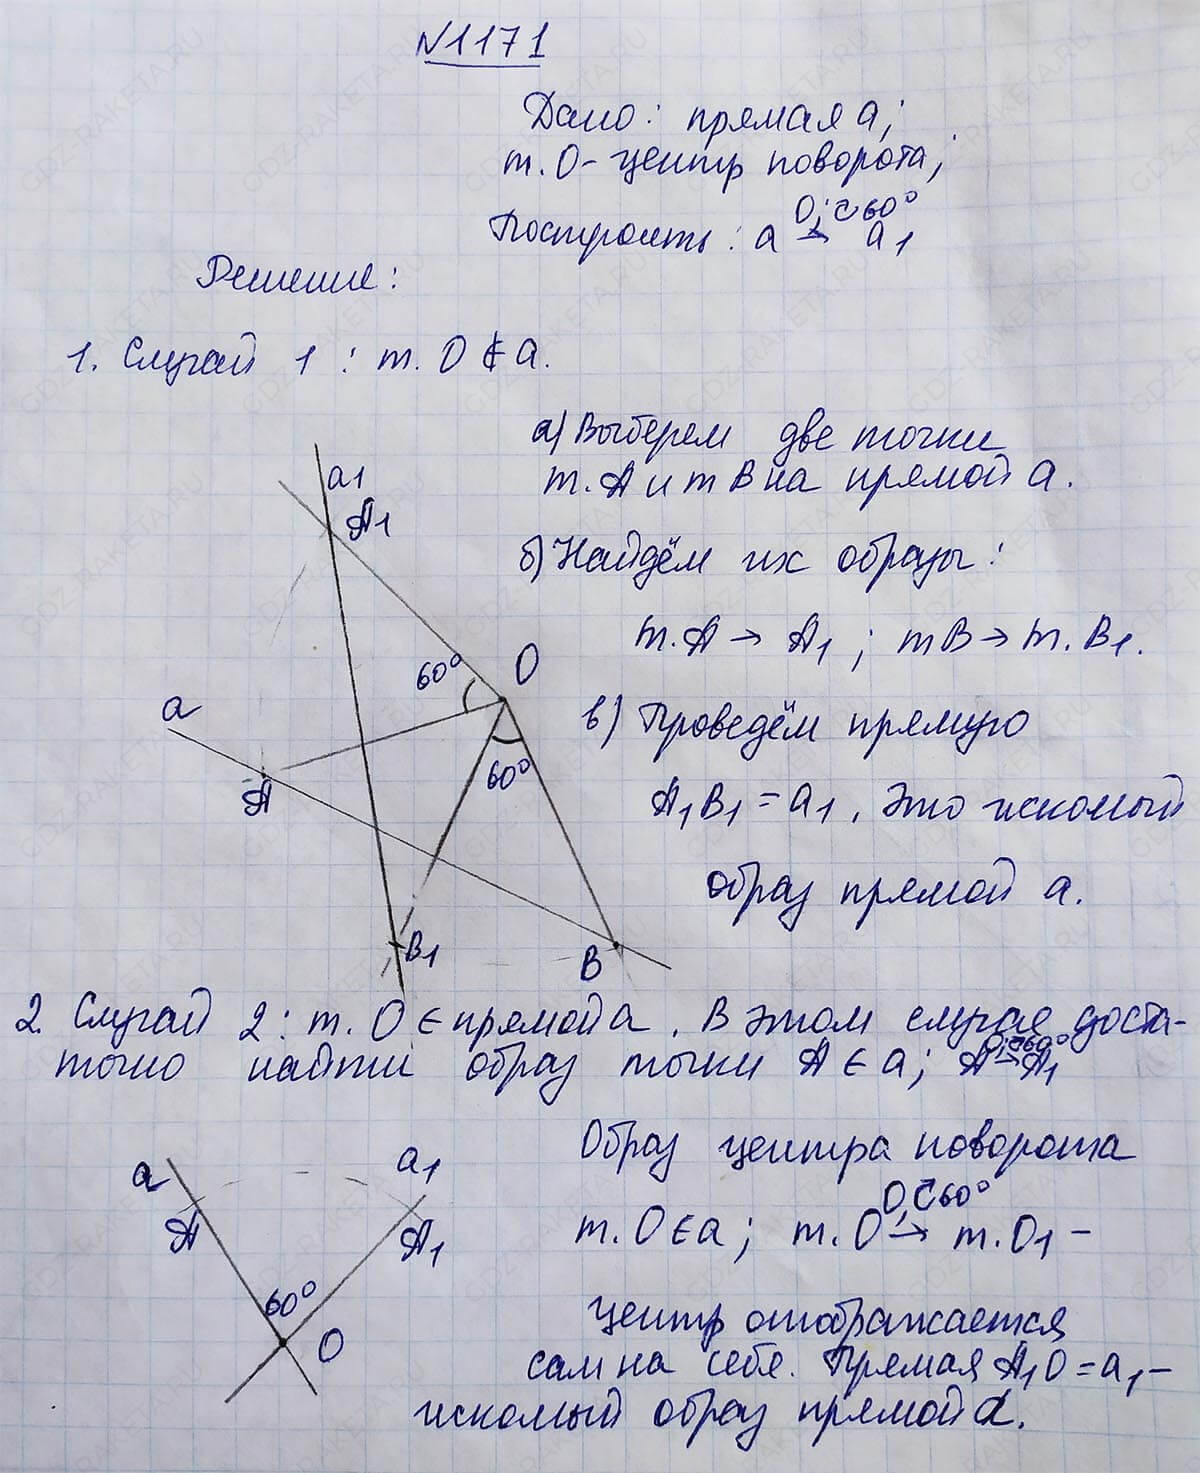 N1171
Дано: прямая a;
т. O - центр поворота;
O; ↻60°
Построить: a → a1
Решение:
1. Случай 1: т. O ∉ a.
а) Выберем две точки
т. A и т B на прямой a.
б) Найдём их образы:
т. A → A1; т B → т. B1.
в) Проведём прямую
A1B1 = a1. Это искомый
образ прямой a.
a1
A1
60°
O
a
A
60°
B1
B
2. Случай 2: т. O ∈ прямой a. В этом случае доста-
точно найти образ точки A ∈ a; A → A1
O; ↻60°
a
A
a1
A1
60°
O
Образ центра поворота
O, ↻60°
т. O ∈ a; т. O → т. O1 -
центр отображается
сам на себя. Прямая A1O = a1 -
искомый образ прямой a.
GDZ-RAKETA.RU